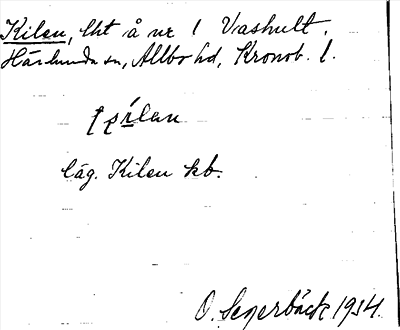 Kilen, lht å nr 1 Vashult.
Härlunda sn, Allbo hd, Kronob. l.
låg. Kilen kb.
O. Segerbäck 1934.